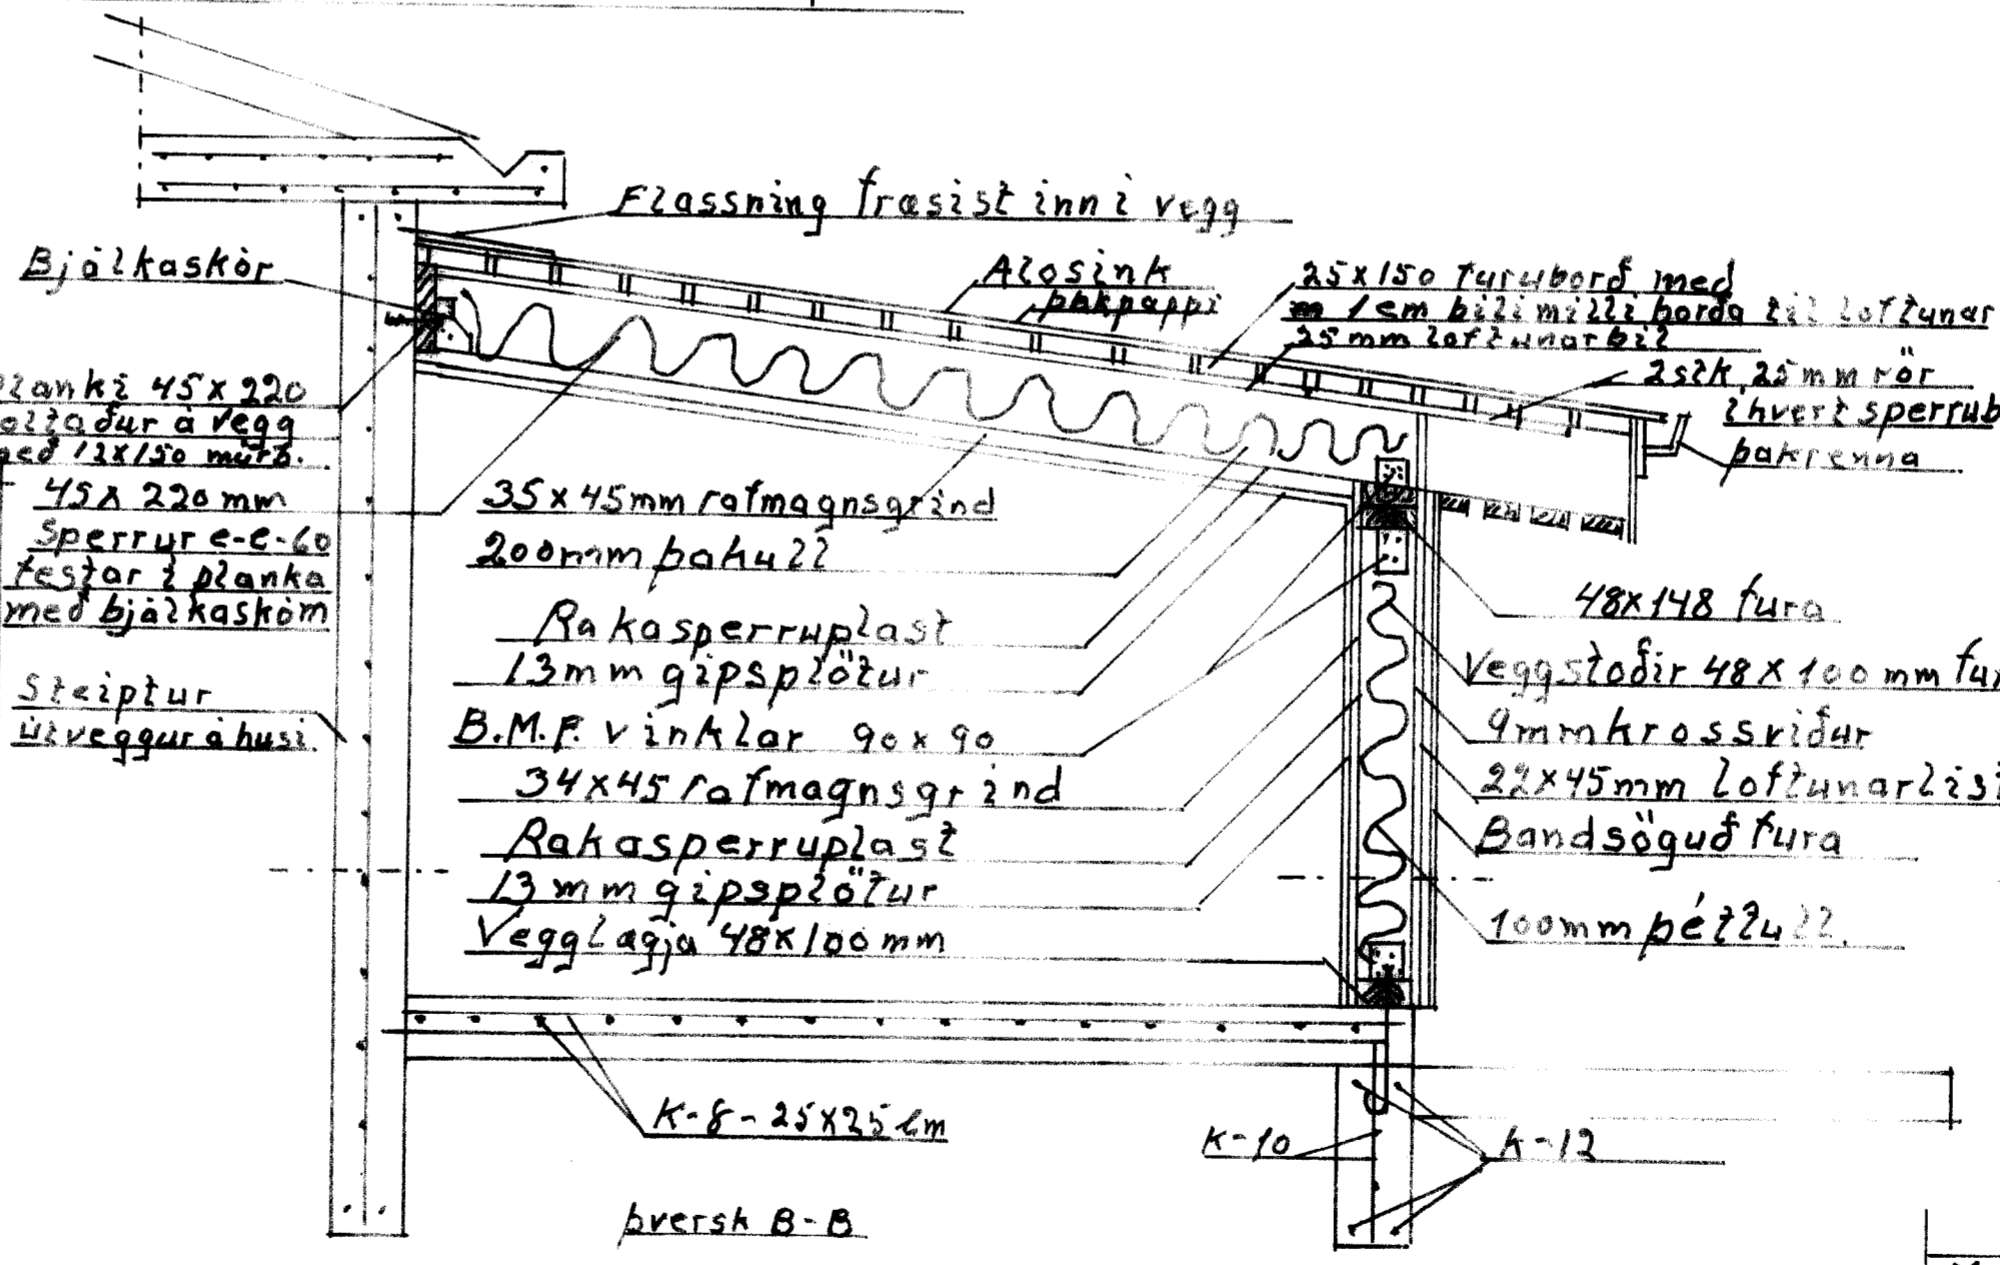 Flassning fræsist inn í vegg
Bjálkaskór
Alosink
þakpappi
25x150 furuborð með
m 1cm bili milli borða til loftunar
25mm loftunarbil
2stk. 25mm rör
í hvert sperrub
þakrenna
planki 45x220
boltaður á vegg
með 12x150 múrb.
45x220mm
sperrur c-c-60
festar í planka
með bjálkaskóm
Steiptur
útveggur á húsi
35x45mm rafmagnsgrind
200mm þakull
Rakasperruplast
13mm gipsplötur
B.M.F. vinklar 90x90
34x45 rafmagnsgrind
Rakasperruplast
13mm gipsplötur
Vegglægja 48x100mm
48x148 fura
Veggstoðir 48x100mm fur
9mm krossviður
22x45mm loftunarlist
Bandsöguð fura
100mm þéttull.
K-8-25x25cm
K-10
K-12
þversk B-B